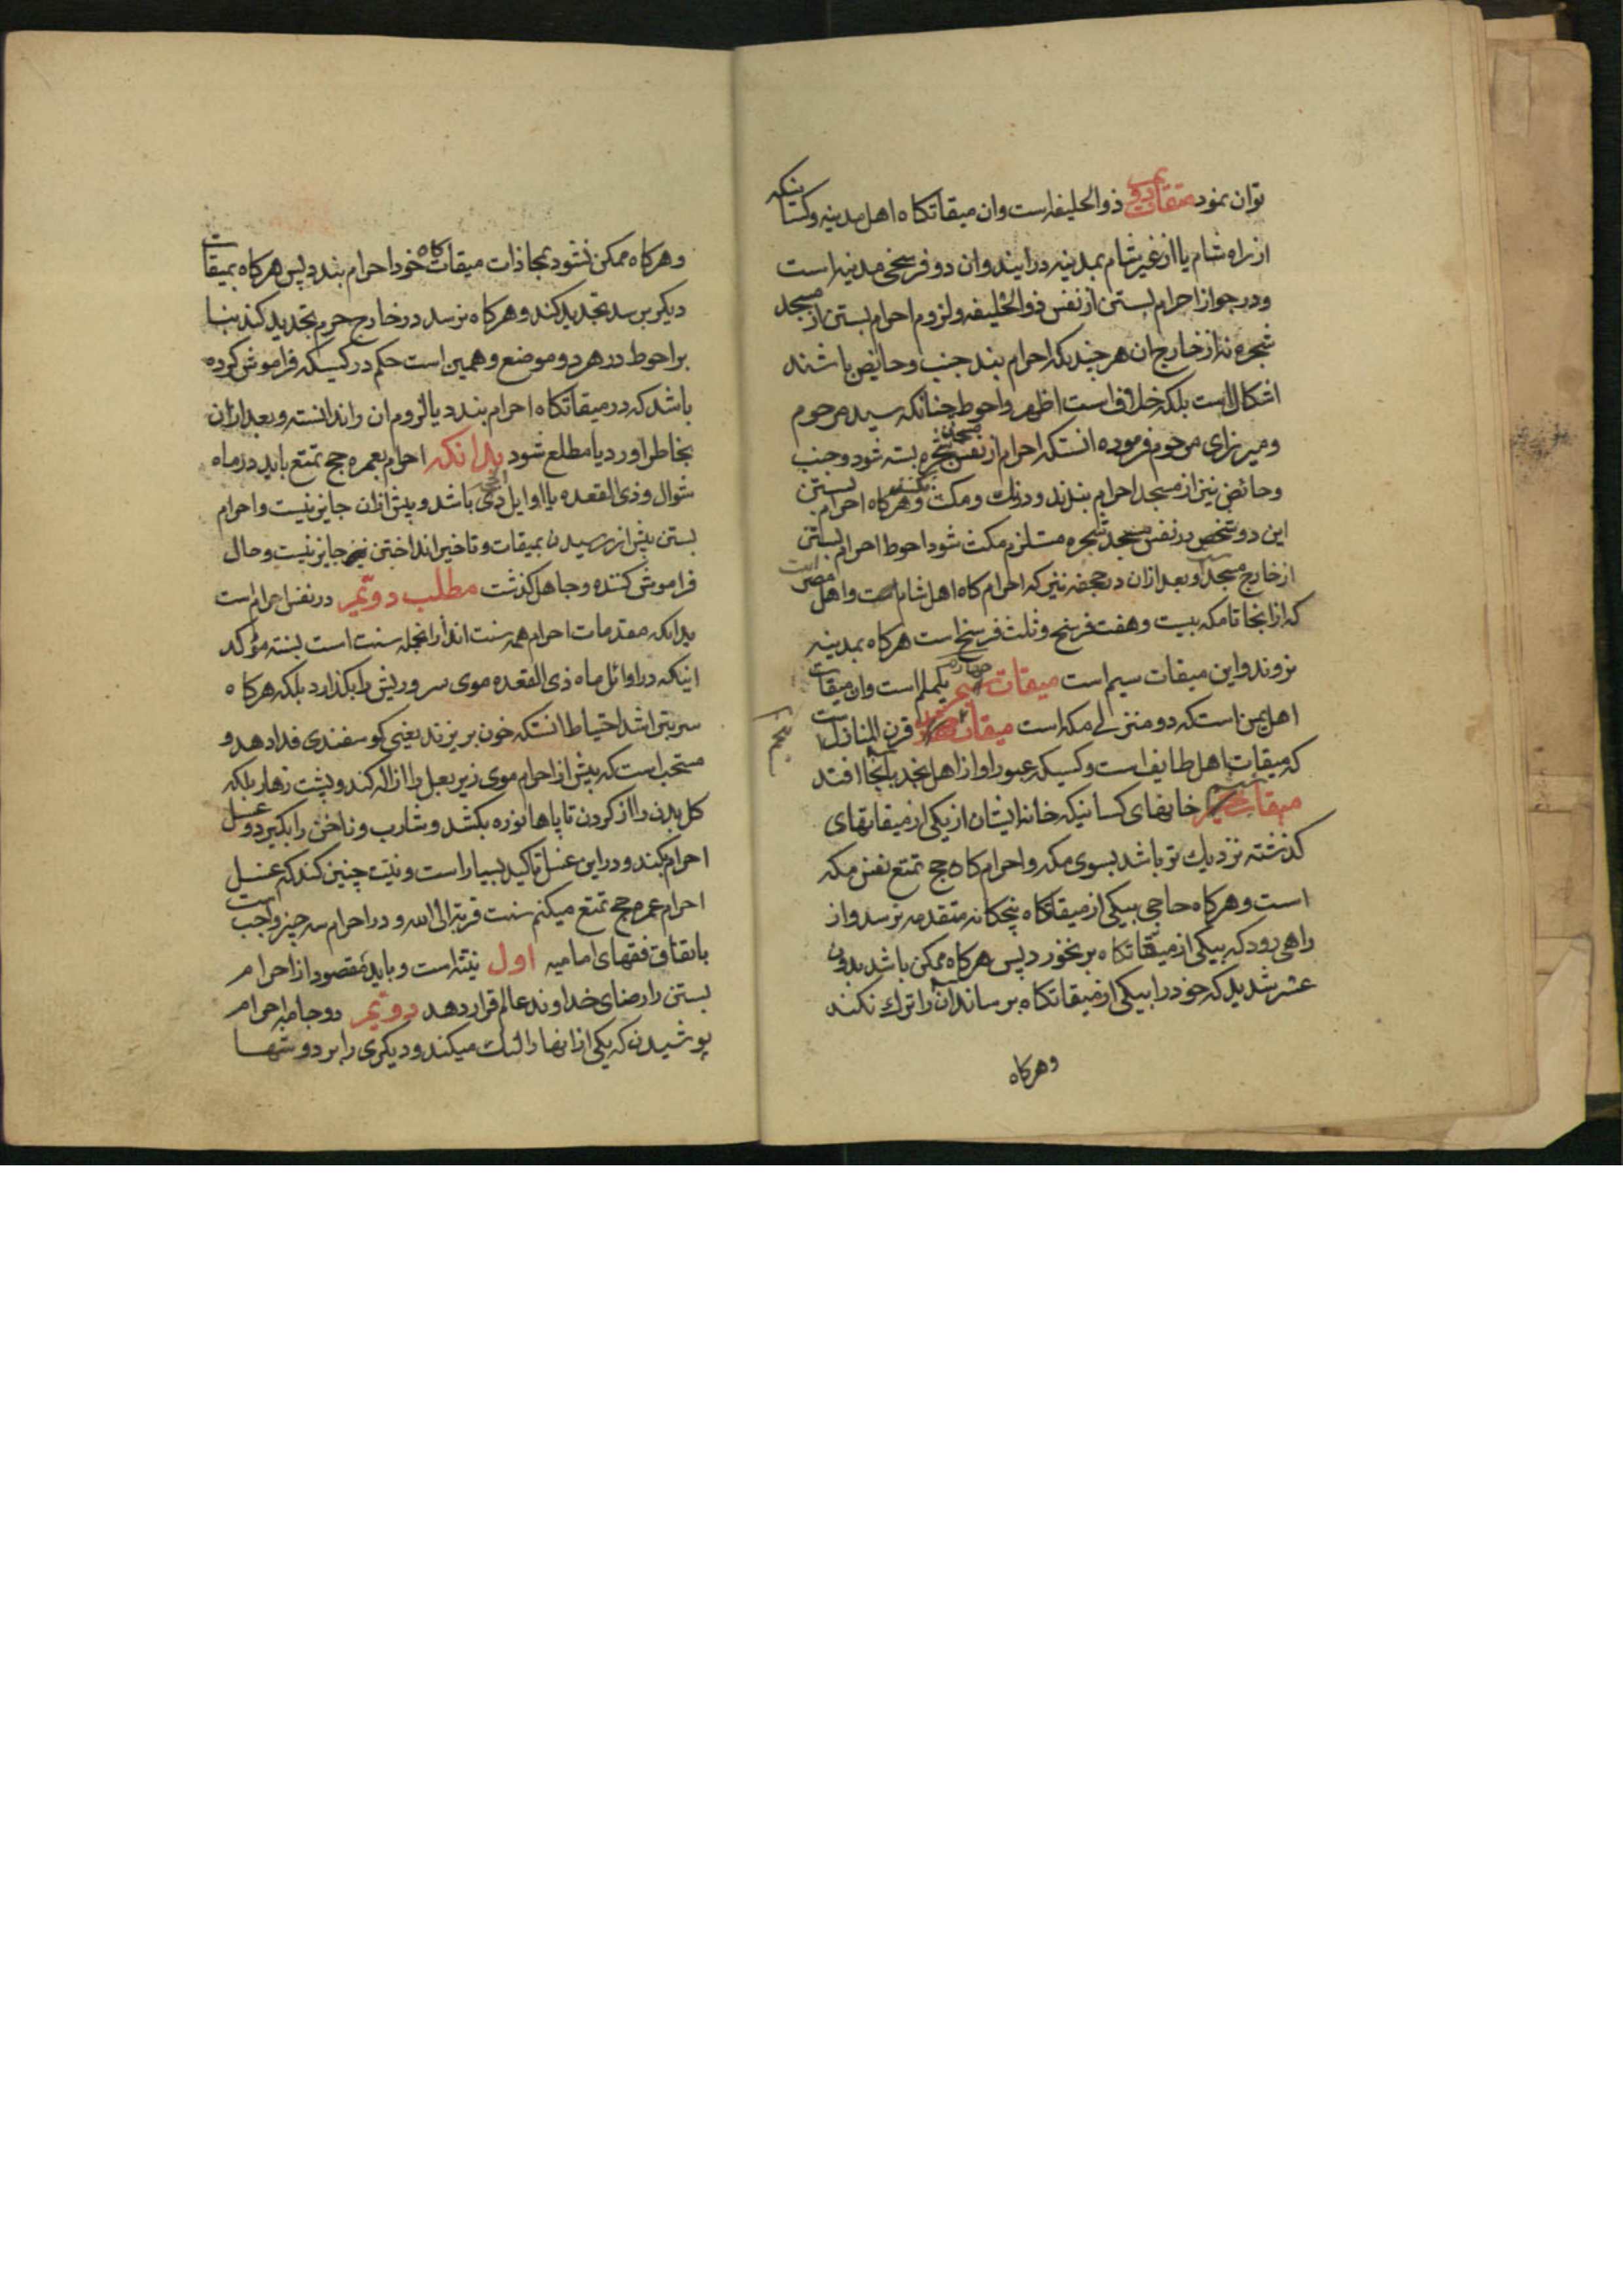 توان نمود میقات دویم ذوالحلیفه است وان میقاتکاه اهل مدینه وکسانیکه
از راه شام یا از غیر شام بمدینه درایند وان دو فرسخی مدینه است
ودر جواز احرام بستن از نفس ذوالحلیفه ولزوم احرام بستن از مسجد
شجره نه از خارج ان هر چند که احرام بند جنب وحایض باشند
اشکال است بلکه خلاف است اظهر واحوط چنانکه سید مرحوم
ومیرزای مرحوم فرموده انستکه احرام از نفس مسجد شجره بسته شود وجنب
وحائض نیز از مسجد احرام بندند ودرنك ومکث نکنند وهرکاه احرام بستن
این دو شخص در نفس مسجد شجره مستلزم مکث شود احوط احرام بستن
از خارج مسجد است وبعد از ان در جحفه نیز که احرام کاه اهل شام است واهل مصر است
که از انجا تا مکه بیست وهفت فرسخ وثلث فرسخ است هرکاه بمدینه
نروند واین میقات سیم است میقات چهارم یلملم است وان میقات
اهل یمن است که دو منزلی مکه است میقات پنجم قرن المنازل است
که میقات اهل طایف است وکسیکه عبور او از اهل نجد بانجا افتد
میقات ششم خانهای کسانیکه خانه ایشان از یکی از میقاتهای
کذشته نزدیك تر باشد بسوی مکه واحرام کاه حج تمتع نفس مکه
است وهرکاه حاجی بیکی از میقاتکاه پنجکانه متقدمه نرسد واز
راهی رود که بیکی از میقاتکاه برنخورد پس هرکاه ممکن باشد بدون
عسر شدید که خود را بیکی از میقاتکاه برساند ان را ترك نکند
وهرکاه
وهرکاه ممکن نشود بمحاذات میقات کاه خود احرام بندد پس هرکاه بمیقات
دیکر برسد تجدید کند وهرکاه نرسد در خارج حرم تجدید کند بنا
بر احوط در هر دو موضع وهمین است حکم در کسیکه فراموش کرده
باشد که در میقاتکاه احرام بندد یا لزوم ان را ندانسته وبعد از ان
بخاطر اورد یا مطلع شود بدانکه احرام بعمره حج تمتع باید در ماه
شوال وذی القعده یا اوایل ذی الحجه باشد وپیش از ان جایز نیست واحرام
بستن پیش از رسیدن بمیقات وتاخیر انداختن نیز جایز نیست وحال
فراموش کننده وجاهل کذشت مطلب دویم در نفس احرام است
بدانکه مقدمات احرام همه سنت اند از انجمله سنت است بسنته مؤکد
اینکه در اوائل ماه ذی القعده موی سر وریش را بکذارد بلکه هرکاه
سر بتراشد احتیاط انستکه خون بریزند یعنی کوسفندی فدا دهد و
مستحب است که پیش از احرام موی زیر بغل را ازاله کند وپشت زهار بلکه
کل بدن را از کردن تا پاها نوره بکشد وشارب وناخن را بکیرد وغسل
احرام بکند ودر این غسل تاکید بسیار است ونیت چنین کند که غسل
احرام عمره حج تمتع میکنم سنت قربة الی الله ودر احرام سه چیز واجب است
باتفاق فقهای امامیه اول نیت است وباید مقصود از احرام
بستن را رضای خداوند عالم قرار دهد دویم دو جامه احرام
پوشیدن که یکی از انها را لنك میکند ودیکری را بر دوشها